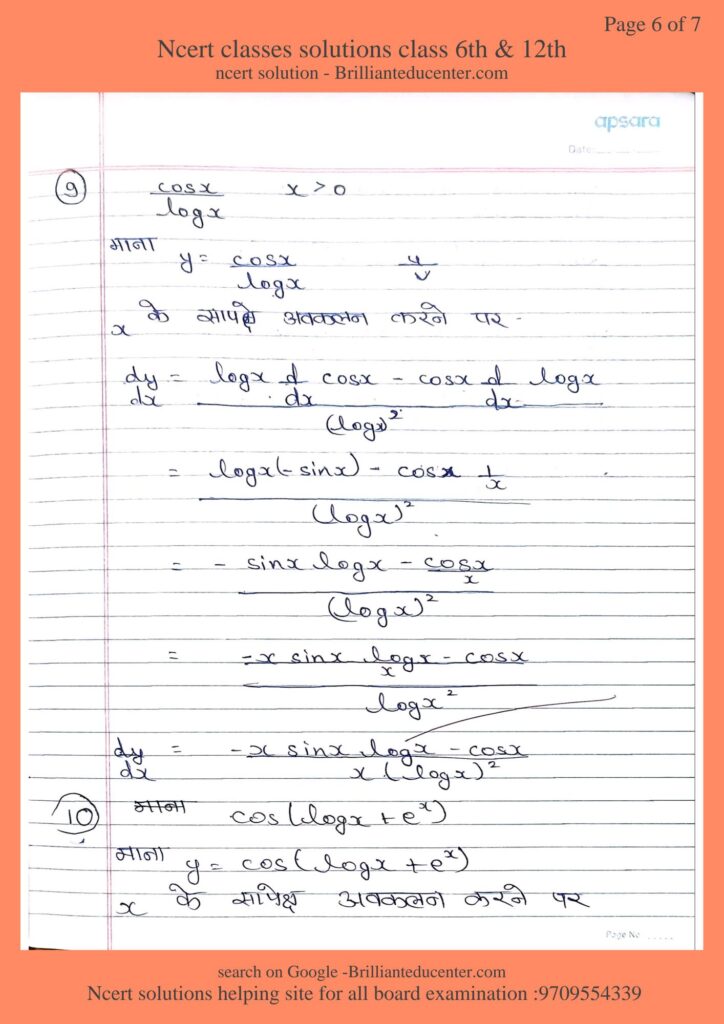 Page 6 of 7
Ncert classes solutions class 6th & 12th
ncert solution - Brillianteducenter.com
apsara
Date:
9 cosx/logx x > 0
माना y = cosx/logx u/v
x के सापेक्ष अवकलन करने पर -
dy/dx = (logx d/dx cosx - cosx d/dx logx)/(logx)²
= (logx(-sinx) - cosx 1/x)/(logx)²
= (- sinx logx - cosx/x)/(logx)²
= ((-x sinx logx - cosx)/x)/logx²
dy/dx = (-x sinx logx - cosx)/(x(logx)²)
10 माना cos(logx + eˣ)
माना y = cos(logx + eˣ)
x के सापेक्ष अवकलन करने पर
Page No
search on Google -Brillianteducenter.com
Ncert solutions helping site for all board examination :9709554339